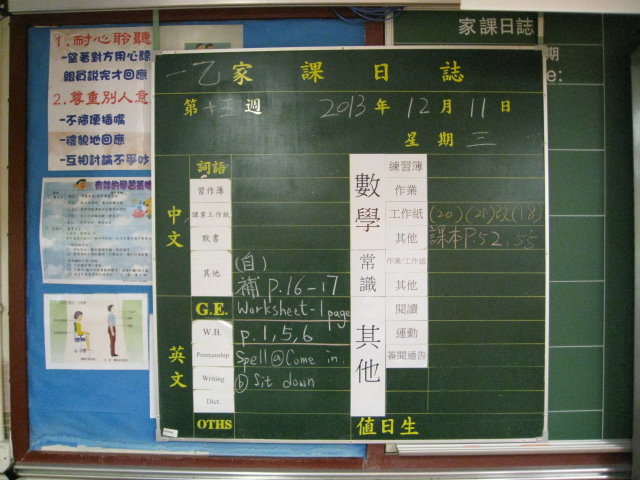 1.耐心聆聽
-望著對方用心聽
組員說完才回應
2.尊重別人意
-不隨便插嘴
-禮貌地回應
-互相討論不爭吵
家課日誌
期
e:
一乙家課日誌
第十五週 2013年12月11日
星期三
中文
詞語
習作簿
課業工作紙
默書
其他 (自)
補 P.16-17
G.E. Worksheet-1 page
英文
W.B. p.1,5,6
Penmanship Spell ⓐ Come in
Writing ⓑ Sit down
Dict.
OTHS
數學
練習簿
作業
工作紙 (20)(21)改(18)
其他 課本P.52
常識
作業/工作紙
其他
其他
閱讀
運動
簽閱通告
值日生